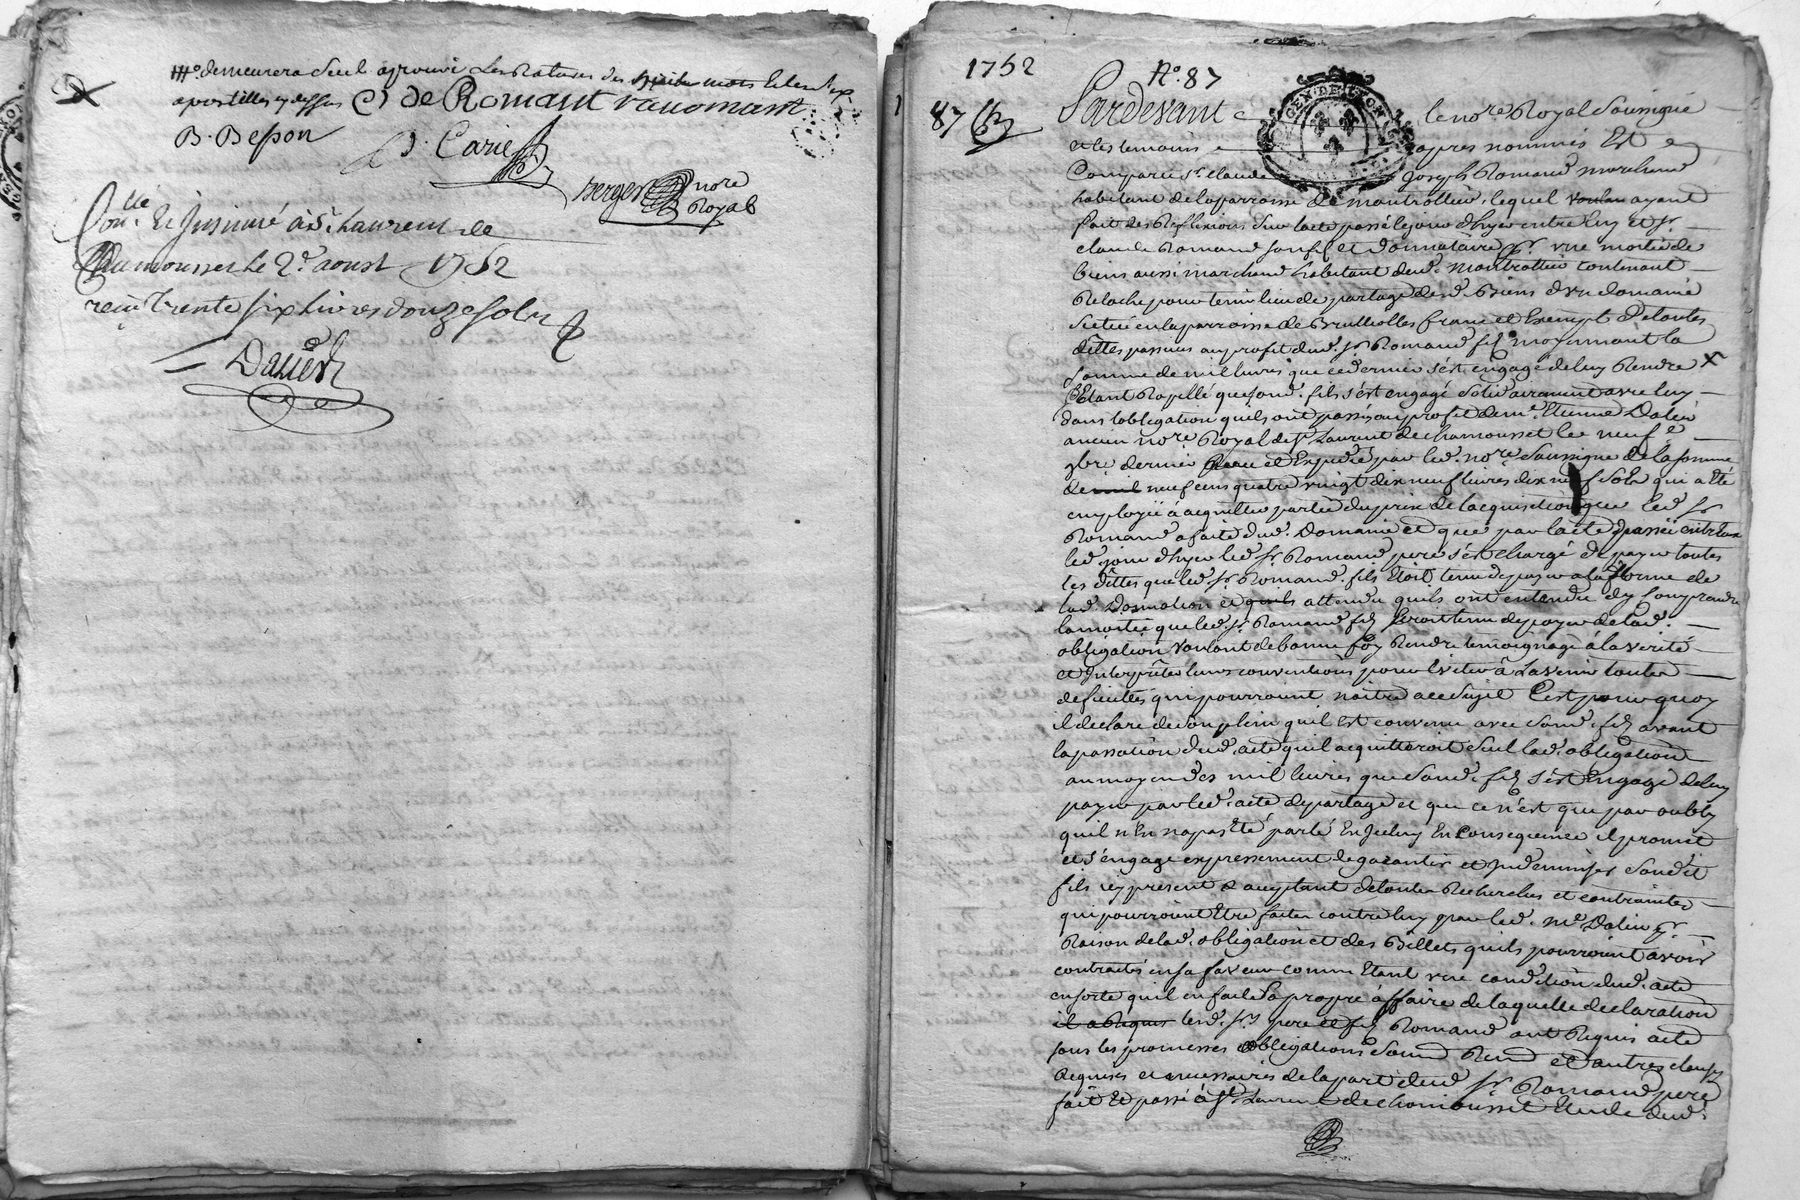 demeurera seul aprouvé les ratures des mots et les dix
apostilles cy dessus C J de Romant v a Romant
B. Besson
J. Carie
berger nore
Royal
Con.lle Et Insinué à St. Laurent de
Chamousset le 2e aoust 1752
reçu trente six livres douze sols
Dalier
1752
No. 87
87
GEN. DE LYON
Pardevant le nore Royal soussigné
et les temoins apres nommés Est
Comparu sr. Claude Joseph Romand marchand
habitant de la parroisse de montrottier, lequel voulan ayant
fait des Reflexions sur lacte passé le jour dhyer entre luy et sr.
claude Romand son fils et donnataire pr. une moitié de
biens aussi marchand habitant dud. montrottier contenant
Relache pour tenir lieu de partage desd. Biens d'un domaine
scitué en la parroisse de Brulliolles franc et Exempt de toutes
dêttes passives au profit dud. sr. Romand fils moyennant la
somme de mil livres que ce dernier s'est engagé de luy Rendre X
Etant Rapellé que sond. fils s'est engagé solidairement avec luy
dans lobligation quils ont passés au profit de me. Etienne Dalier
ancien nore Royal de st. Laurent de chamousset le neuf
9bre dernier Receu et Expedié par led. nore soussigné de la somme
de mil neuf cens quatre vingt dix neuf livres dix neuf sols qui a Eté
employé à acquitter partie du prix de lacquisition que led. sr.
Romand a faite dud. Domaine et que par lacte passé entr'eux
led. jour dhyer led. sr. Romand pere s'est chargé de payer toutes
les dêttes que led. sr. Romand fils Etoit tenu de payer a la forme de
lad. Donnation et quils attendu quils ont entendu d'y comprendre
la moitié que led. sr. Romand fils seroit tenu de payer de lad.
obligation voulant de bonne foy Rendre temoignage à la verité
et Interprêter leurs conventions pour Eviter à Lavenir toutes
deficultés qui pourroient naitre a ce sujet C'est pourquoy
il declare de son plein quil est convenu avec sond. fils avant
la passation dud. acte quil acquitteroit seul lad. obligation
au moyen des mil livres que sond. fils s'est Engagé de luy
payer par led. acte de partage et que ce n'est que par oubly
quil n'En n'a pas Eté parlé En Iceluy En Consequence il promet
et s'engage expressement de garantir et Indemniser sondit
fils icy present & acceptant de toutes Recherches et contraintes
qui pourroient Etre faites contre luy par led. me. Dalier pr.
Raison de lad. obligation et des Billets quils pourroient avoir
contractés en sa faveur comme Etant une condition dud. acte
en sorte quil en fait sa propre affaire de laquelle declaration
lesd. srs. pere et fils Romand ont Requis acte
sous les promesses obligations soumd. Rend. et autres clauses
Requises et necessaires de la part dud. sr. Romand pere
fait Et passé à st. Laurent de chamousset Etude dud.